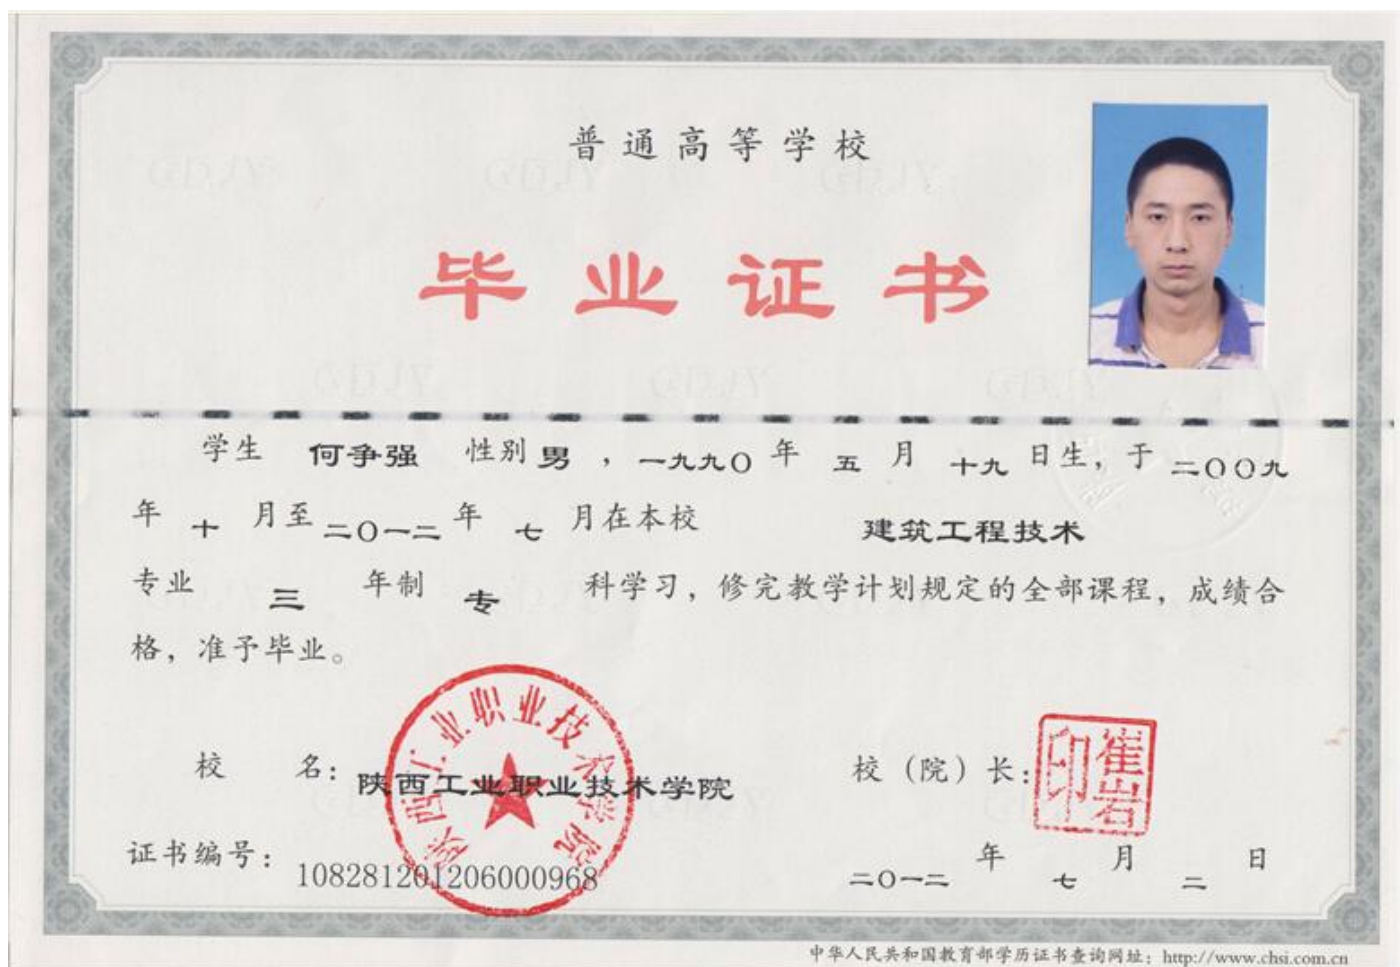 普通高等学校
毕业证书
学生 何争强 性别 男 ，一九九〇 年 五 月 十九 日生，于 二〇〇九
年 十 月至 二〇一二 年 七 月在本校 建筑工程技术
专业 三 年制 专 科学习，修完教学计划规定的全部课程，成绩合
格，准予毕业。
陕西工业职业技术学院
校 名：陕西工业职业技术学院
校（院）长：
崔岩
印
证书编号：108281201206000968
二〇一二 年 七 月 二 日
中华人民共和国教育部学历证书查询网址：http://www.chsi.com.cn